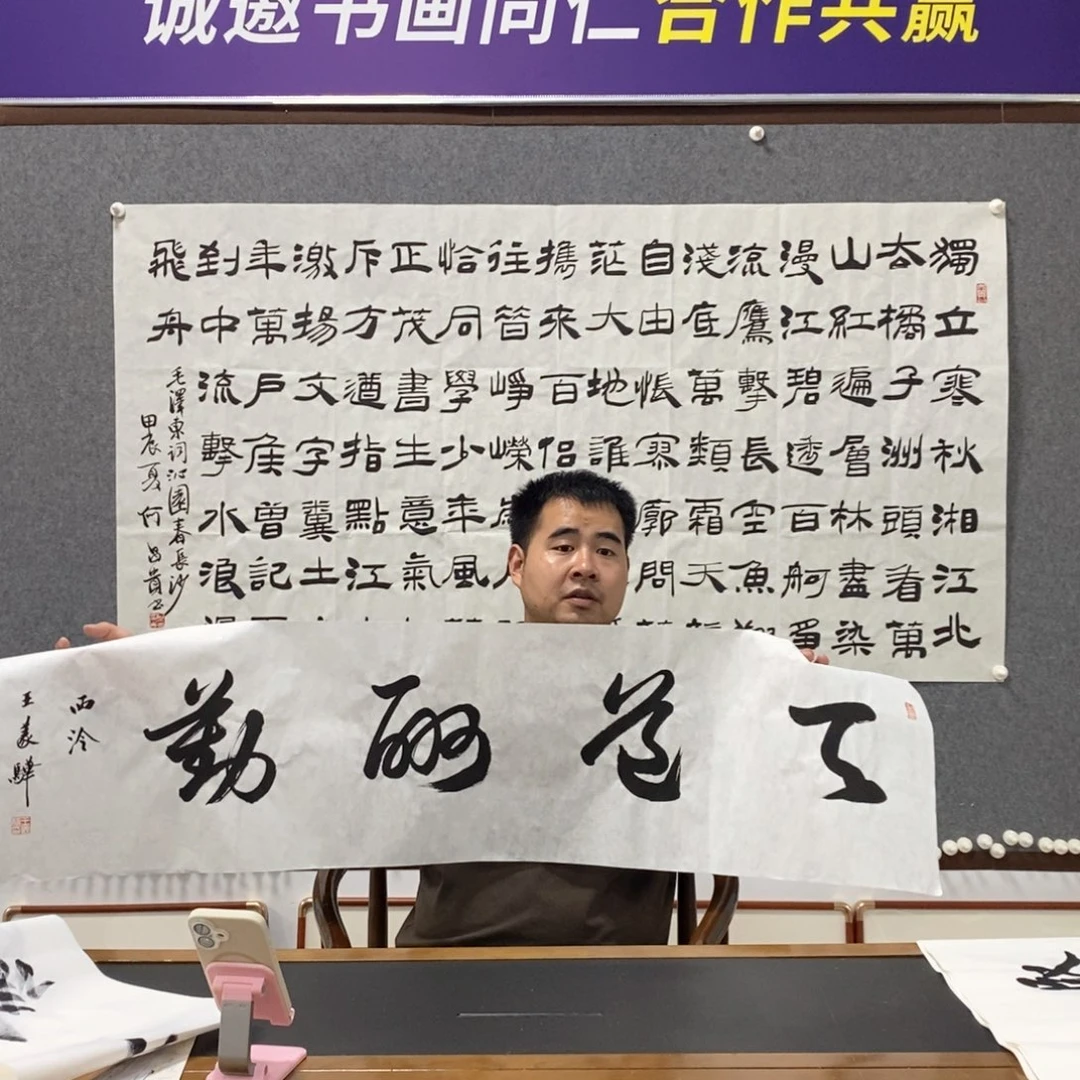 诚邀书画同仁合作共赢
獨立寒秋湘江北
去橘子洲頭看萬
山紅遍層林盡染
漫江碧透百舸爭
流鷹擊長空魚翔
淺底萬類霜天
自由悵寥廓問
茫大地誰
攜來百侶
往昔崢嶸
恰同學少年風
正茂書生意氣
斥方遒指點江
激揚文字糞土
年萬戶侯曾記
到中流擊水浪
飛舟
毛澤東詞沁園春長沙
甲辰夏何昌貴书
天道酬勤
西泠
王義驊